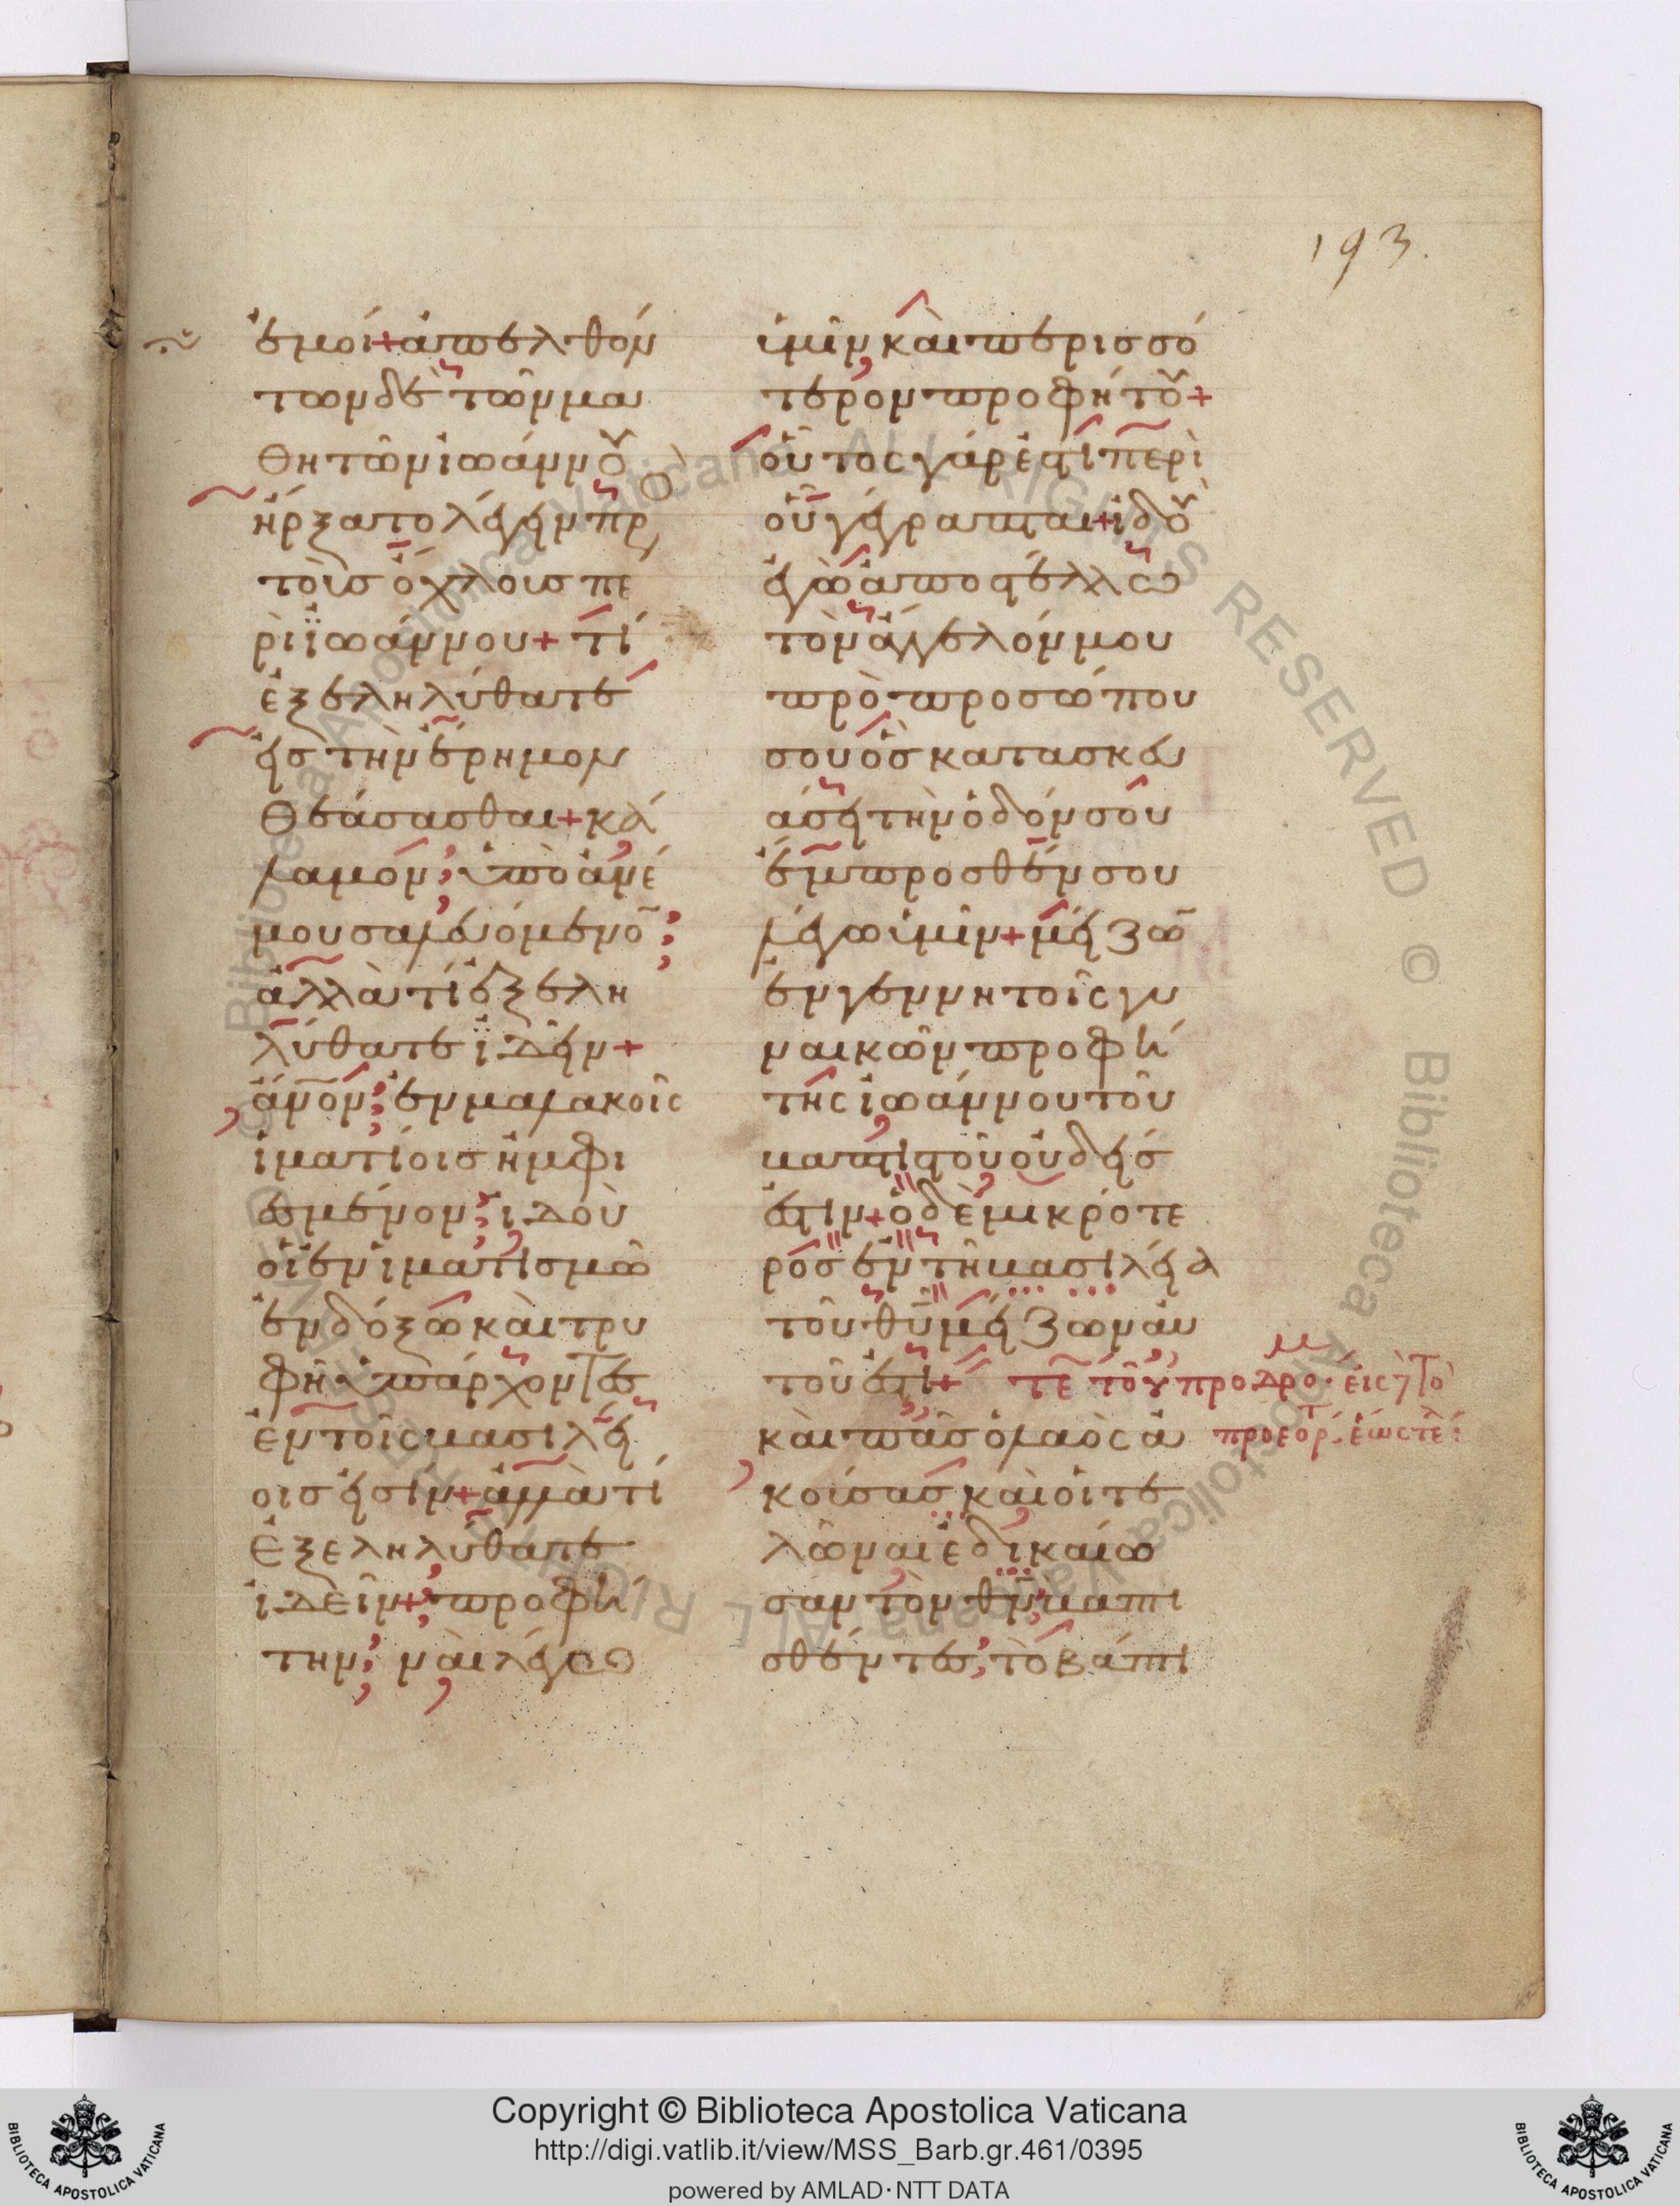 193.
ἐμοί + ἀπελθόν
των δὲ τῶν μα
θητῶν ἰωάννου
ἤρξατο λέγειν πρ
τοῖς ὄχλοις πε
ρὶ ϊωάννου + τί
ἐξεληλύθατε
εἰς τὴν ἔρημον
θεάσασθαι + κά
λαμον; ὑπὸ ἀνέ
μου σαλευόμενο̄;
ἀλλὰ τί ἐξελη
λύθατε ϊδεῖν +
ἄνον; ἐν μαλακοῖς
ἱματίοις ἠμφι
εσμένον; ἰδοὺ
οἱ ἐν ἱματισμῶ
ἐνδόξω καὶ τρυ
φῆ ὑπάρχοντες
ἐν τοῖς βασιλεί
οις εἰσίν + ἀλλὰ τί
ἐξεληλύθατε
ἰδεῖν + προφή
την; ναὶ λέγω
ὑμῖν καὶ περισσό
τερον προφήτου +
οὗτος γάρ ἐστι περὶ
οὗ γέγραπται + ἰδοὺ
ἐγὼ ἀποστέλλω
τὸν ἄγγελόν μου
πρὸ προσώπου
σου ὃς κατασκευ
άσει τὴν ὁδόν σου
ἔμπροσθέν σου
λέγω ὑμῖν + μείζω̄
ἐν γεννητοῖς γυ
ναικῶν προφή
της ἰωάννου τοῦ
βαπτιστοῦ οὐδείς
ἐστιν + ὁ δὲ μικρότε
ρος ἐν τῆ βασιλεία
τοῦ θυ μείζων αυ
τοῦ ἐστι + τε τοῦ προδρο. εἰς τὸ
καὶ πᾶς ὁ λαὸς ἀ προεορ. ἕως τε:
κούσας καὶ οἱ τε
λῶναι ἐδικαίω
σαν τὸν θν βαπτι
σθέντες, τὸ βάπτι
Copyright © Biblioteca Apostolica Vaticana
http://digi.vatlib.it/view/MSS_Barb.gr.461/0395
powered by AMLAD·NTT DATA